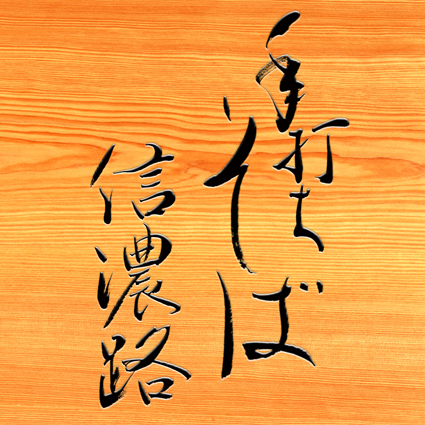 手打ちそば
信濃路